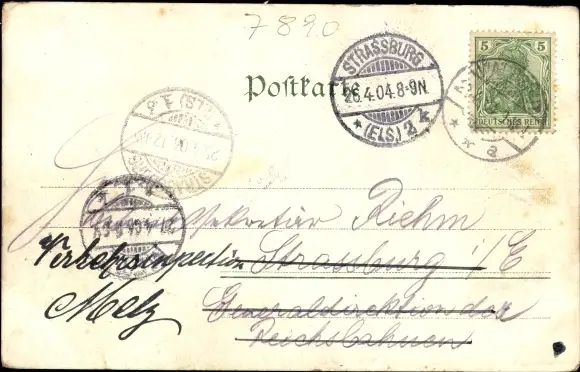 7890
Postkarte
STRASSBURG
26.4.04.8-9N
* (ELS.) 2 k
5 5
DEUTSCHES REICH
Sekretär Riehm
Verkehrsinspektion Strassburg i/E
Metz Generaldirektion der
Reichsbahnen